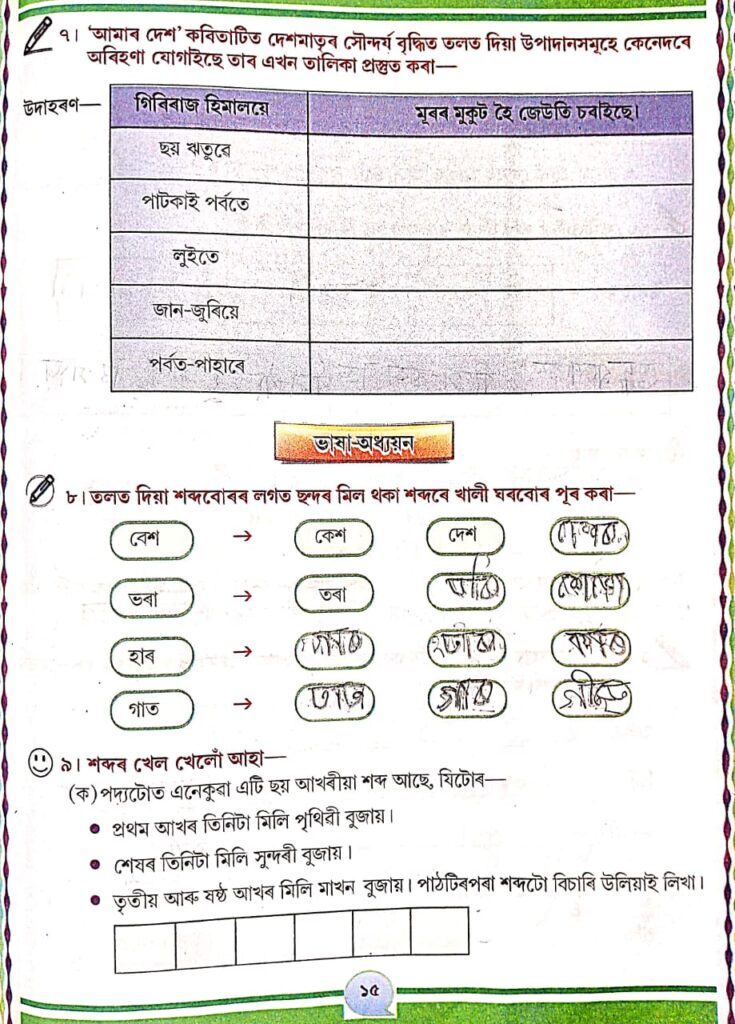 ৭। ‘আমাৰ দেশ’ কবিতাটিত দেশমাতৃৰ সৌন্দৰ্য বৃদ্ধিত তলত দিয়া উপাদানসমূহে কেনেদৰে
অৰিহণা যোগাইছে তাৰ এখন তালিকা প্ৰস্তুত কৰা—
উদাহৰণ— গিৰিৰাজ হিমালয়ে মূৰৰ মুকুট হৈ জেউতি চৰাইছে।
ছয় ঋতুৱে
পাটকাই পৰ্বতে
লুইতে
জান-জুৰিয়ে
পৰ্বত-পাহাৰে
ভাষা-অধ্যয়ন
৮। তলত দিয়া শব্দবোৰৰ লগত ছন্দৰ মিল থকা শব্দৰে খালী ঘৰবোৰ পূৰ কৰা—
বেশ → কেশ দেশ
ভৰা → তৰা
হাৰ →
গাত →
৯। শব্দৰ খেল খেলোঁ আহা—
(ক) পদ্যটোত এনেকুৱা এটি ছয় আখৰীয়া শব্দ আছে, যিটোৰ—
● প্ৰথম আখৰ তিনিটা মিলি পৃথিৱী বুজায়।
● শেষৰ তিনিটা মিলি সুন্দৰী বুজায়।
● তৃতীয় আৰু ষষ্ঠ আখৰ মিলি মাখন বুজায়। পাঠটিৰপৰা শব্দটো বিচাৰি উলিয়াই লিখা।
১৫